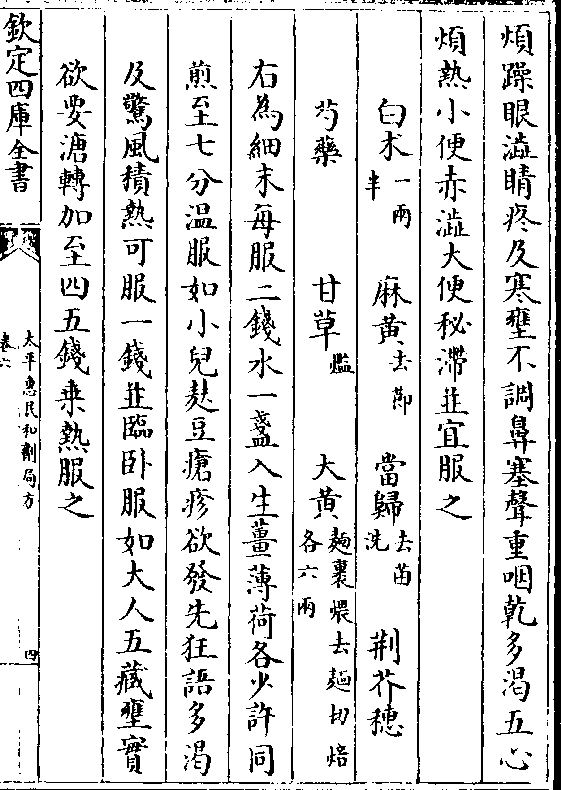 煩躁眼澁睛疼及寒壅不調鼻塞聲重咽乾多渴五心
煩熱小便赤澁大便秘滯並宜服之
白术一兩半 麻黄去節 當歸去苗洗 荆芥穗
芍藥 甘草爁 大黄麵裹煨去麵切焙各六兩
右為細末每服二錢水一盞入生薑薄荷各少許同
煎至七分温服如小兒麩豆瘡疹欲發先狂語多渴
及驚風積熱可服一錢並臨卧服如大人五藏壅實
欲要溏轉加至四五錢乗熱服之
欽定四庫全書
太平惠民和劑局方
卷六
四